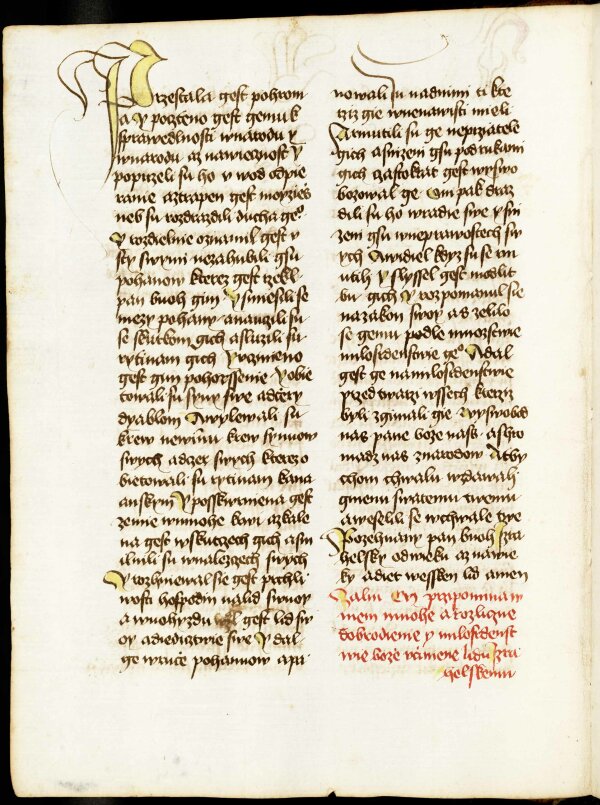 Przestala gest pohrom
a Y poczteno gest gemu k
sprawedlnosti w narodu y
w narodu az nawiecznost Y
popuzeli su ho v wod odpie
ranie a ztrapen gest moyzies
neb su rozdrazdili ducha geᵒ
Y rozdielnie oznamil gest v
sty swymi nezahubili gsu
pohanow kterez gest rzekl
pan buoh gim Y smiesili se
mezy pohany a nauczili su
se skutkom gich a sluzili su
rytinam gich Y vczinieno
gest gim pohorssenie Y obie
towali su syny swe a dcery
dyablom A wylewali su
krew newinnu krew synuow
swych a dczer swych kterez o
bietowali su rytinam kana
anskym Y posskwrniena gest
zemie w mnohe krwi a zkale
na gest w skutczech gich a sm
ilnili su w nalezczech swych
Y rozhniewal sie gest prchli
wosti hospodin na lid swuoy
a w nohyzdu gest lid sw
oy a diedicztwie swe Y dal
ge w ruce pohanuow a pa
nowali su nad nimi ti kte
rziz gie w nenawisti mieli
A rmutili su ge neprzatele
gich a snizeni gsu pod rukami
gich czastokrat gest wyswo
bozowal ge Oni pak draz
dili su ho w radie swe y sni
zeni gsu w neprawostech sw
ych A widiel kdyz su se rm
utili Y slyssel gest modlit
bu gich Y rozpomanul sie
na zakon swoy a zelilo
se gemu podle mnozstwie
milosrdenstwie geᵒ A dal
gest ge na milosrdenstwie
przed twarzi wssech kterzy
byli zgimali gie Wyswobod
nas pane boze nass a shro
mazd nas z narodow A by
chom chwalu wzdawali
gmenu swatemu twemu
a weselili se w chwale twe
Pozehnany pan buoh Izra
helsky od wieku az na wie
ky a diet wesken lid amen
Zalm CVI przipominan
niem mnohe a rozliczne
dobrodienie y milosrdenst
wie boze vczinene lidu Izra
helskemu